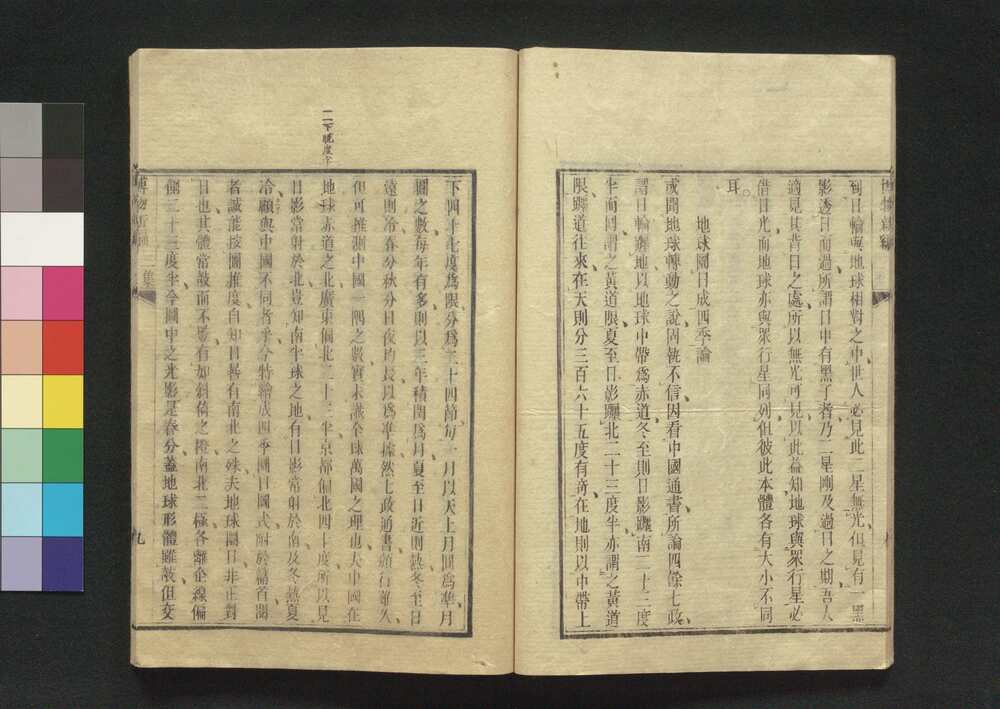 到日輪與地球相對之中世人必見此二星無光但見有一黑
影透日而過所謂日中有黑子者乃二星剛及過日之期吾人
適見其背日之處所以無光可見以此益知地球與眾行星必
借日光而地球亦與眾行星同列但彼此本體各有大小不同
耳
地球圜日成四季論
或聞地球轉動之說固執不信因看中國通書所論四餘七政
謂日輪躔地以地球中帶為赤道冬至則日影躔南二十三度
半而回謂之黃道限夏至日影躔北二十三度半亦謂之黃道
限躔道往來在天則分三百六十五度有奇在地則以中帶上
下四十七度為限分為二十四節每一月以天上月圓為準月
圜之數每年有多則以三年積閏為月夏至日近則熱冬至日
遠則冷春分秋分日夜均長以為準據然七政通書頒行雖久
但可推測中國一隅之數實未識全球萬國之理也夫中國在
地球赤道之北廣東偏北二十三半京都偏北四十度所以見
日影常射於北豈知南半球之地有日影常射於南及冬熱夏
冷顧與中國不同者乎今特繪成四季圜日圖式附於篇首閱
者誠能按圖推度自知日晷有南北之殊夫地球圜日非正對
日也其體常敧而不影有如斜倚之橙南北二極各離企線偏
側二十三度半今圖中之光影是春分蓋地球形體雖敧但交
二下脫度字
博物新編
二集
九